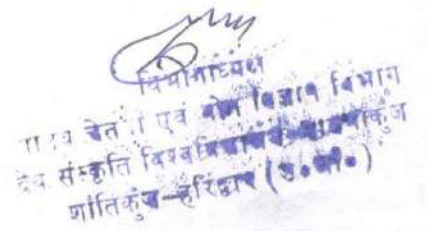 विभागाध्यक्ष
मानव चेतना एवं योग विज्ञान विभाग
देव संस्कृति विश्वविद्यालय-गायत्रीकुंज
शांतिकुंज-हरिद्वार (उ०प्र०)